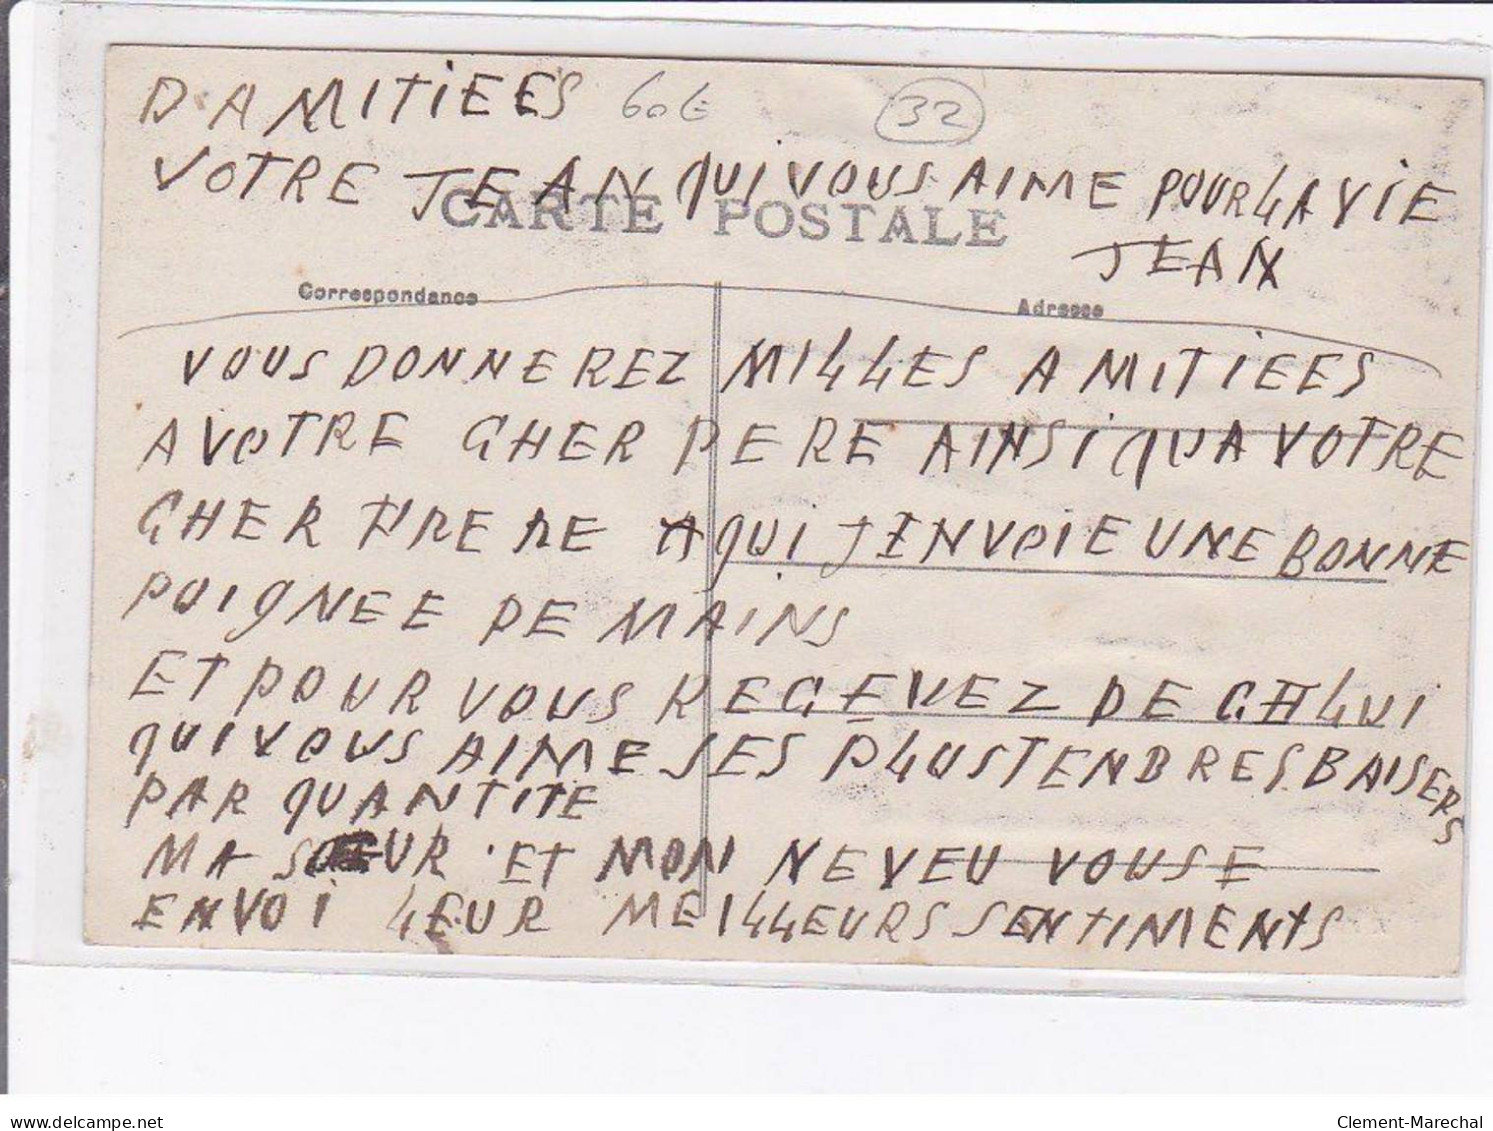 D.AMITIEES 60€ 32
VOTRE JEAN QUI VOUS AIME POUR LA VIE
CARTE POSTALE
JEAN
Correspondance Adresse
VOUS DONNEREZ MILLES AMITIEES
A VOTRE CHER PERE AINSI QUA VOTRE
CHER FRERE A QUI JENVOIE UNE BONNE
POIGNEE DE MAINS
ET POUR VOUS RECEVEZ DE CELUI
QUI VOUS AIME SES PLUS TENDRES BAISERS
PAR QUANTITE
MA SOEUR ET MON NEVEU VOUSE
ENVOI LEUR MEILLEURS SENTIMENTS
delcampe.net Clement-Marechal